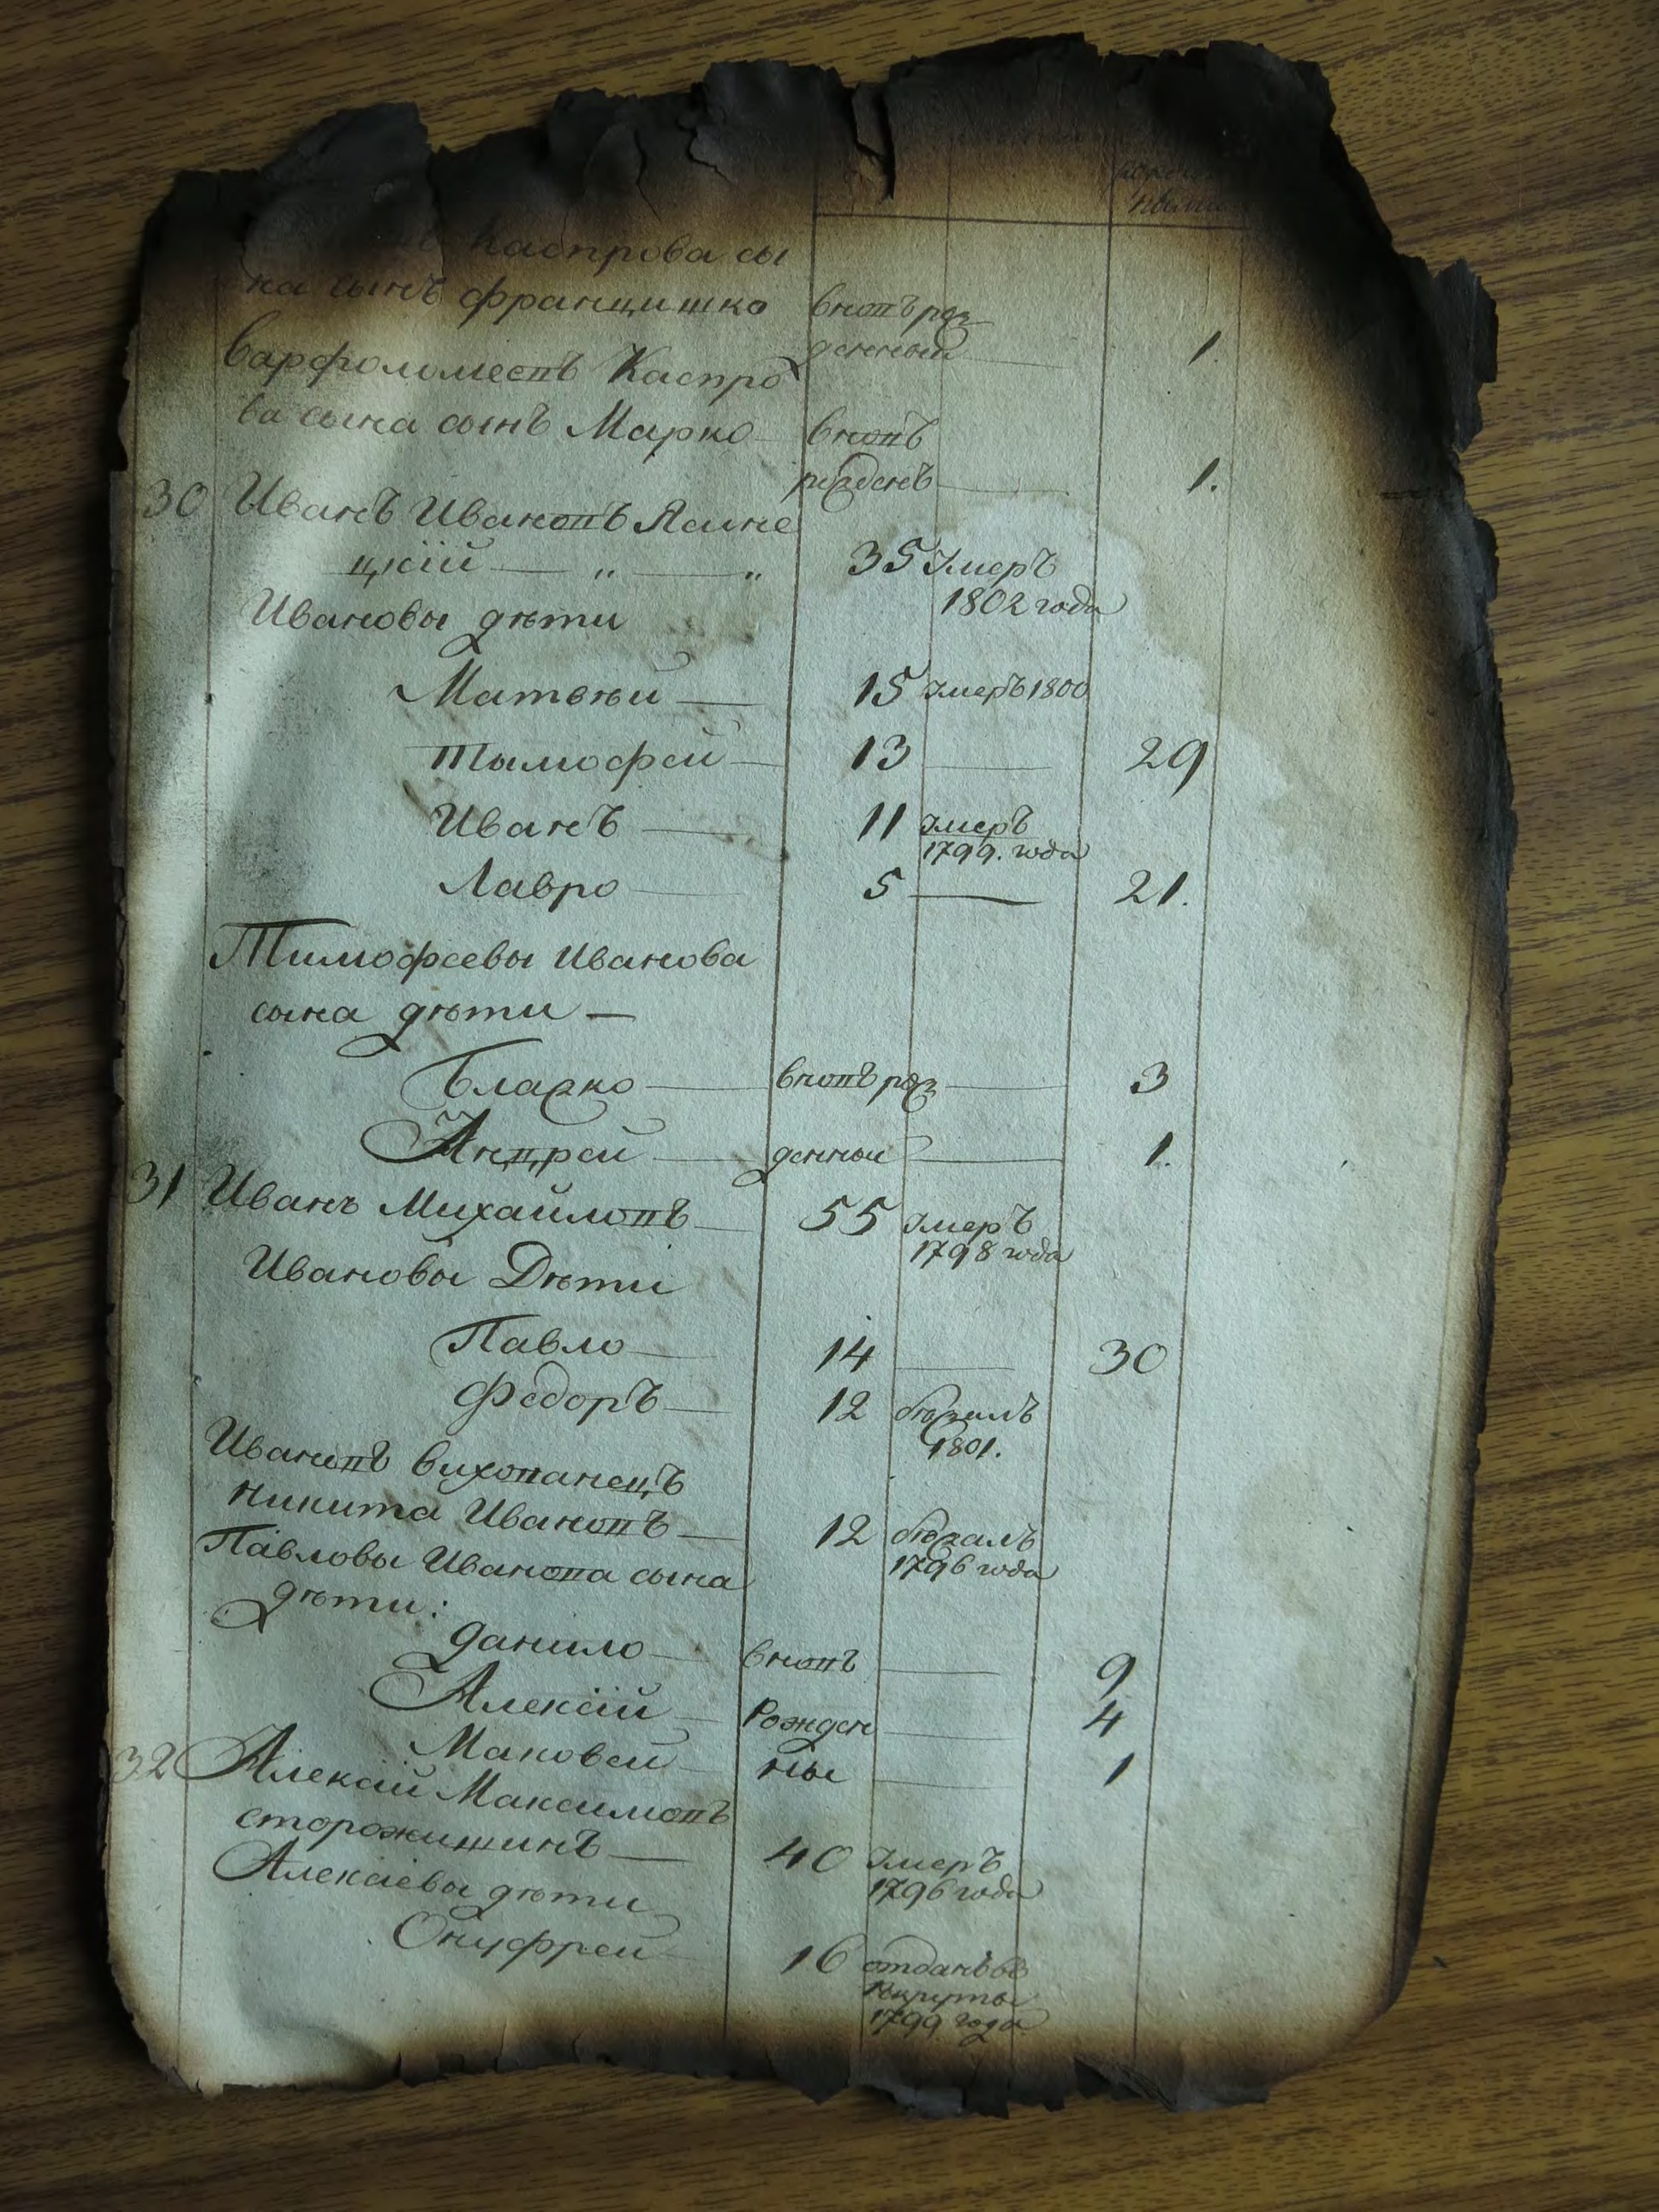 Каспрова сы
на сынъ Францишко вновъ раз
денный 1.
Варфоломеевъ Каспро
ва сына сынъ Марко вновъ
разденъ 1.
30 Иванъ Ивановъ Ясине
цкій — „ — „ 35 умеръ
1802 года
Ивановы дѣти
Матвѣй — 15 умеръ 1800
Тымофей — 13 — 29
Иванъ — 11 умеръ
1799. года
Лавро — 5 — 21.
Тимофеевы Иванова
сына дѣти —
Власко — вновъ раз — 3
Андрей — денныи — 1.
31 Иванъ Михайловъ — 55 умеръ
1798 года
Ивановы Дѣти
Павло — 14 — 30
Федоръ — 12 бѣжалъ
1801.
Ивановъ вихованецъ
Никита Ивановъ — 12 бѣжалъ
1796 года
Павловы Иванова сына
дѣти:
Данило — вновъ — 9
Алексій — рожден — 4
Маковей ные — 1
32 Алексій Максимовъ
Сторожишинъ — 40 умеръ
1796 года
Алексіевы дѣти
Онуфрей 16 отданъ въ
рекруты
1799 года